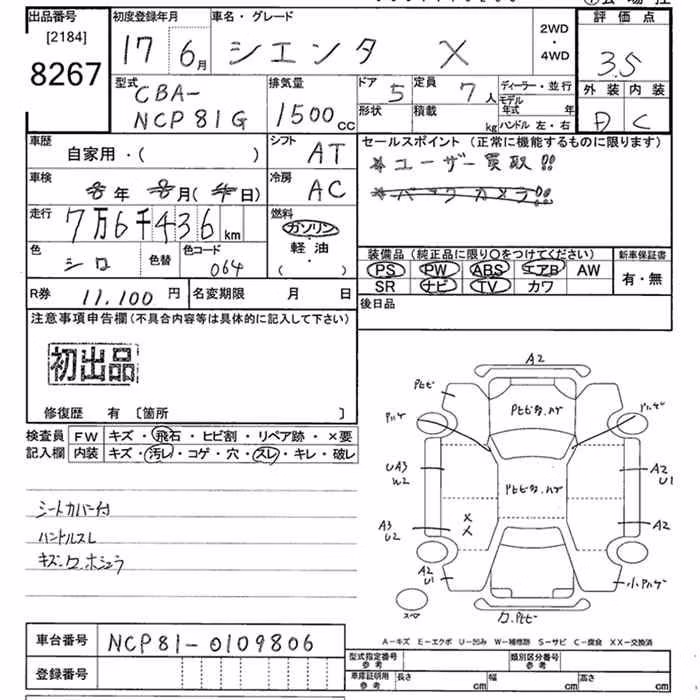 出品番号 初度登録年月 車名・グレード 評価点
[2184] 17 6月 シエンタ X 2WD・4WD 3.5
8267
型式 排気量 ドア 定員 ディーラー・並行 外装 内装
CBA- 5 7人 モデル年式 年
NCP81G 1500cc 形状 積載 kg ハンドル 左・右 D C
車歴 シフト セールスポイント (正常に機能するものに限ります)
自家用・( ) AT ※ユーザー買取!!
車検 年 月( 日) 冷房 AC ※バックカメラ!!
走行 燃料
7万6千436km ガソリン・軽油・( )
色 色替 色コード 装備品(純正品に限り○をつけてください) 新車保証書
シロ 064 PS PW ABS エアB AW 有・無
R券 11,100円 名変期限 月 日 SR ナビ TV カワ
後日品
注意事項申告欄(不具合内容等は具体的に記入して下さい)
初出品
修復歴 有 〔箇所 〕
検査員記入欄 FW キズ・飛石・ヒビ割・リペア跡・×要
内装 キズ・汚レ・コゲ・穴・スレ・キレ・破レ
シートカバー付
ハンドルスレ
A2
UA3
W2
A2
U1
A3
U2
A2
A2
U1
小
スペア
A-キズ E-エクボ U-凹み W-補修跡 S-サビ C-腐食 XX-交換済
車台番号 NCP81-0109806
型式指定番号 参考 類別区分番号 参考
登録番号 車庫証明用 参考 長さ cm 幅 cm 高さ cm